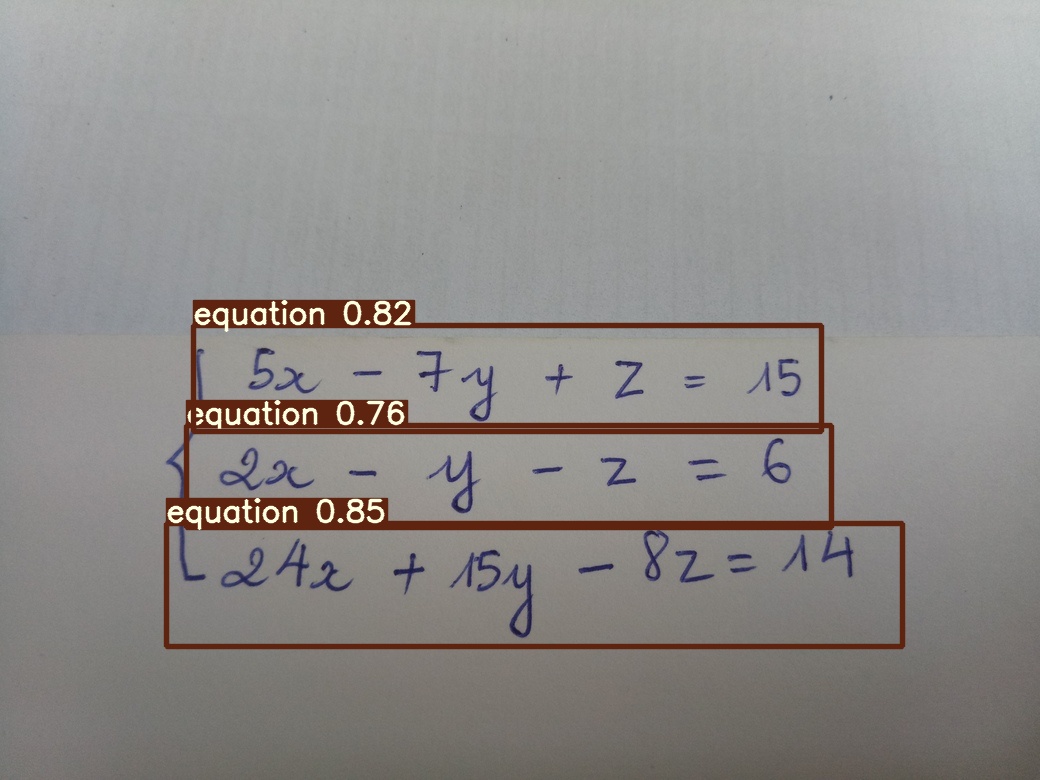 equation 0.82
5x - 7y + z = 15
equation 0.76
2x - y - z = 6
equation 0.85
24x + 15y - 8z = 14